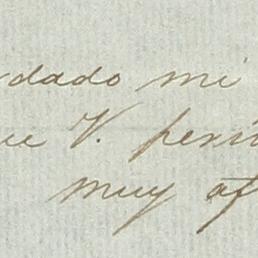 dado mi
ue V.
muy af